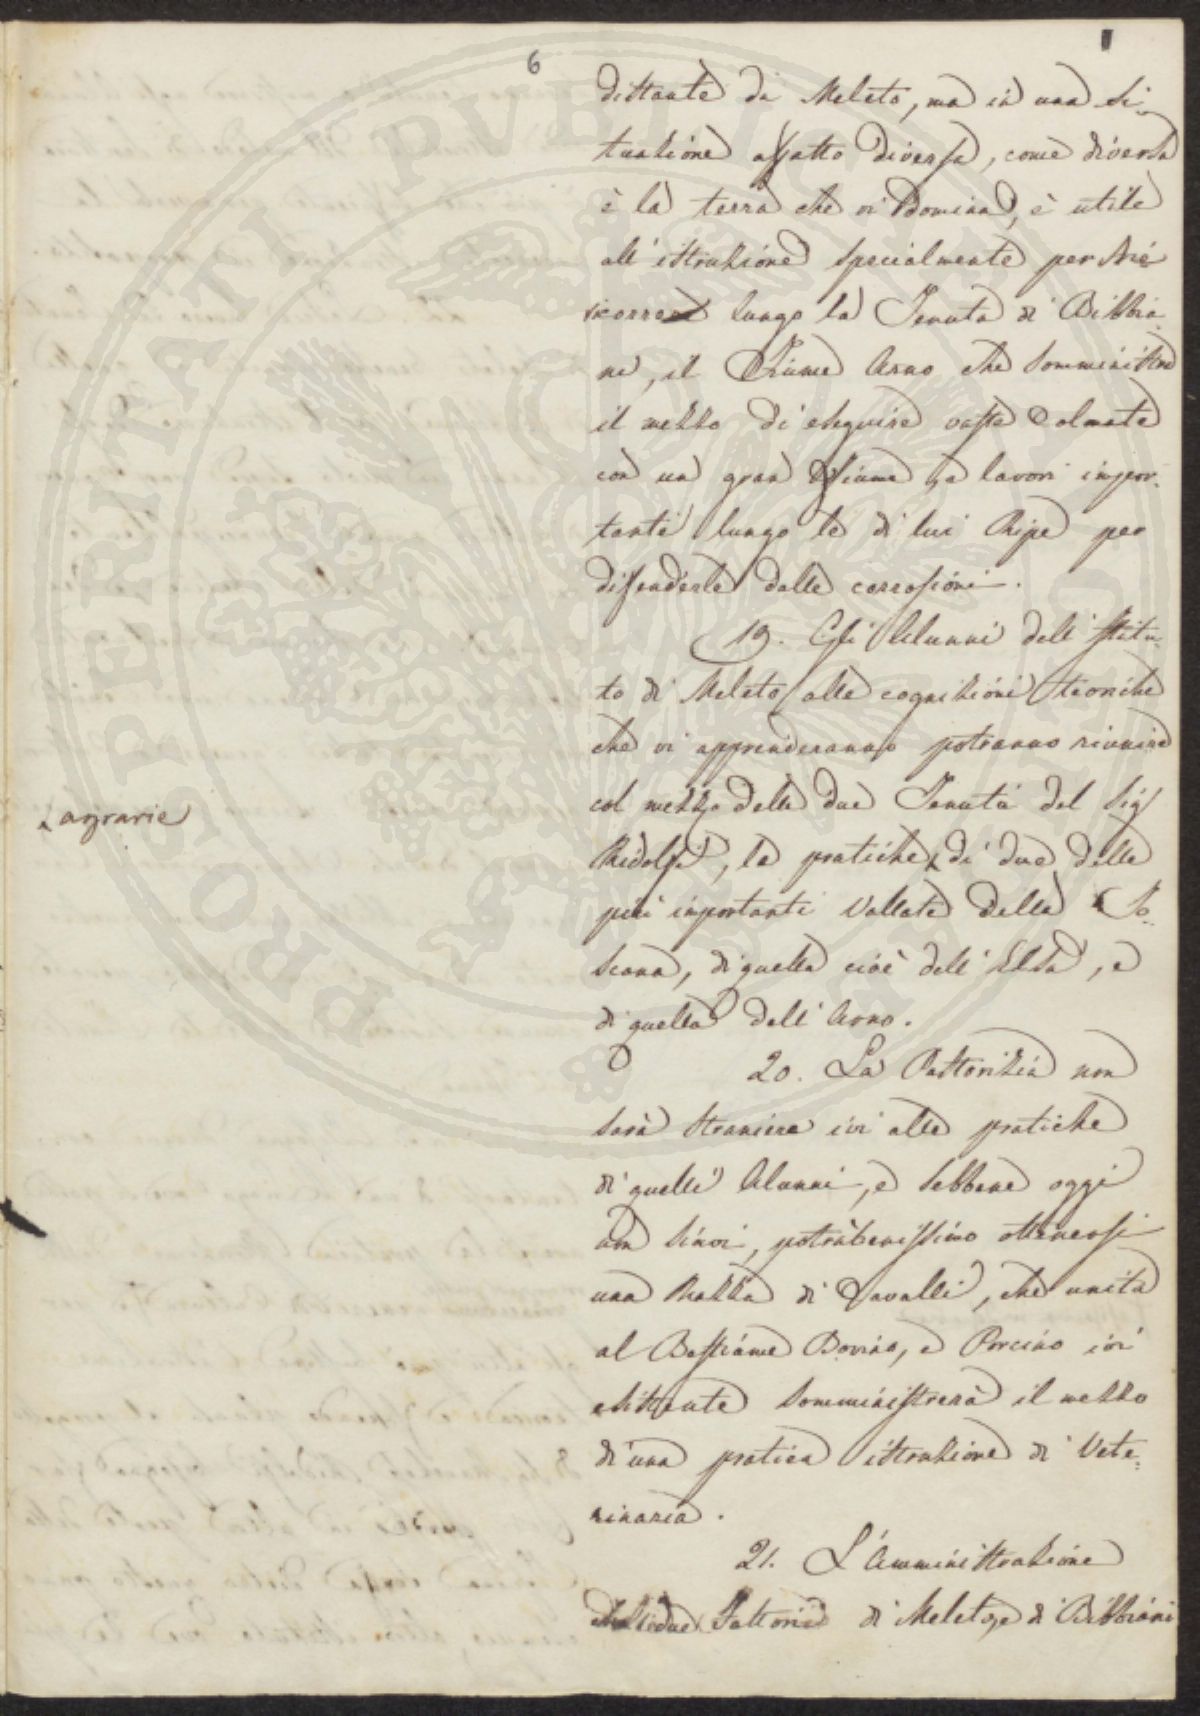 6
distante da Meleto, ma in una si-
tuazione affatto diversa, come diversa
è la terra che vi domina, è utile
all'istruzione specialmente perchè
scorre lungo la Tenuta di Bibbia-
ni, il Fiume Arno che somministra
il mezzo di eseguire vaste Colmate
con un gran Fiume, e lavori impor-
tanti lungo le di lui Ripe per
difenderle dalle corrosioni.
19. Gli Alunni dell'Istitu-
to di Meleto alle cognizioni teoriche
che vi apprenderanno potranno riunire
col mezzo delle due Tenute del Sig
Ridolfi, le pratiche di due delle
agrarie
più importanti Vallate della To-
scana, di quella cioè dell'Elsa, e
di quella dell'Arno.
20. La Pastorizia non
sarà straniera ivi alle pratiche
di quelli Alunni, e sebbene oggi
non siavi, potrà benissimo ottenersi
una Razza di Cavalli, che unita
al Bestiame Bovino, e Porcino ivi
esistente somministrerà il mezzo
d'una pratica istruzione di Vete-
rinaria.
21. L'Amministrazione
due Fattorie di Meleto, e di Bibbiani
PROSPERITATI PUBLICAE